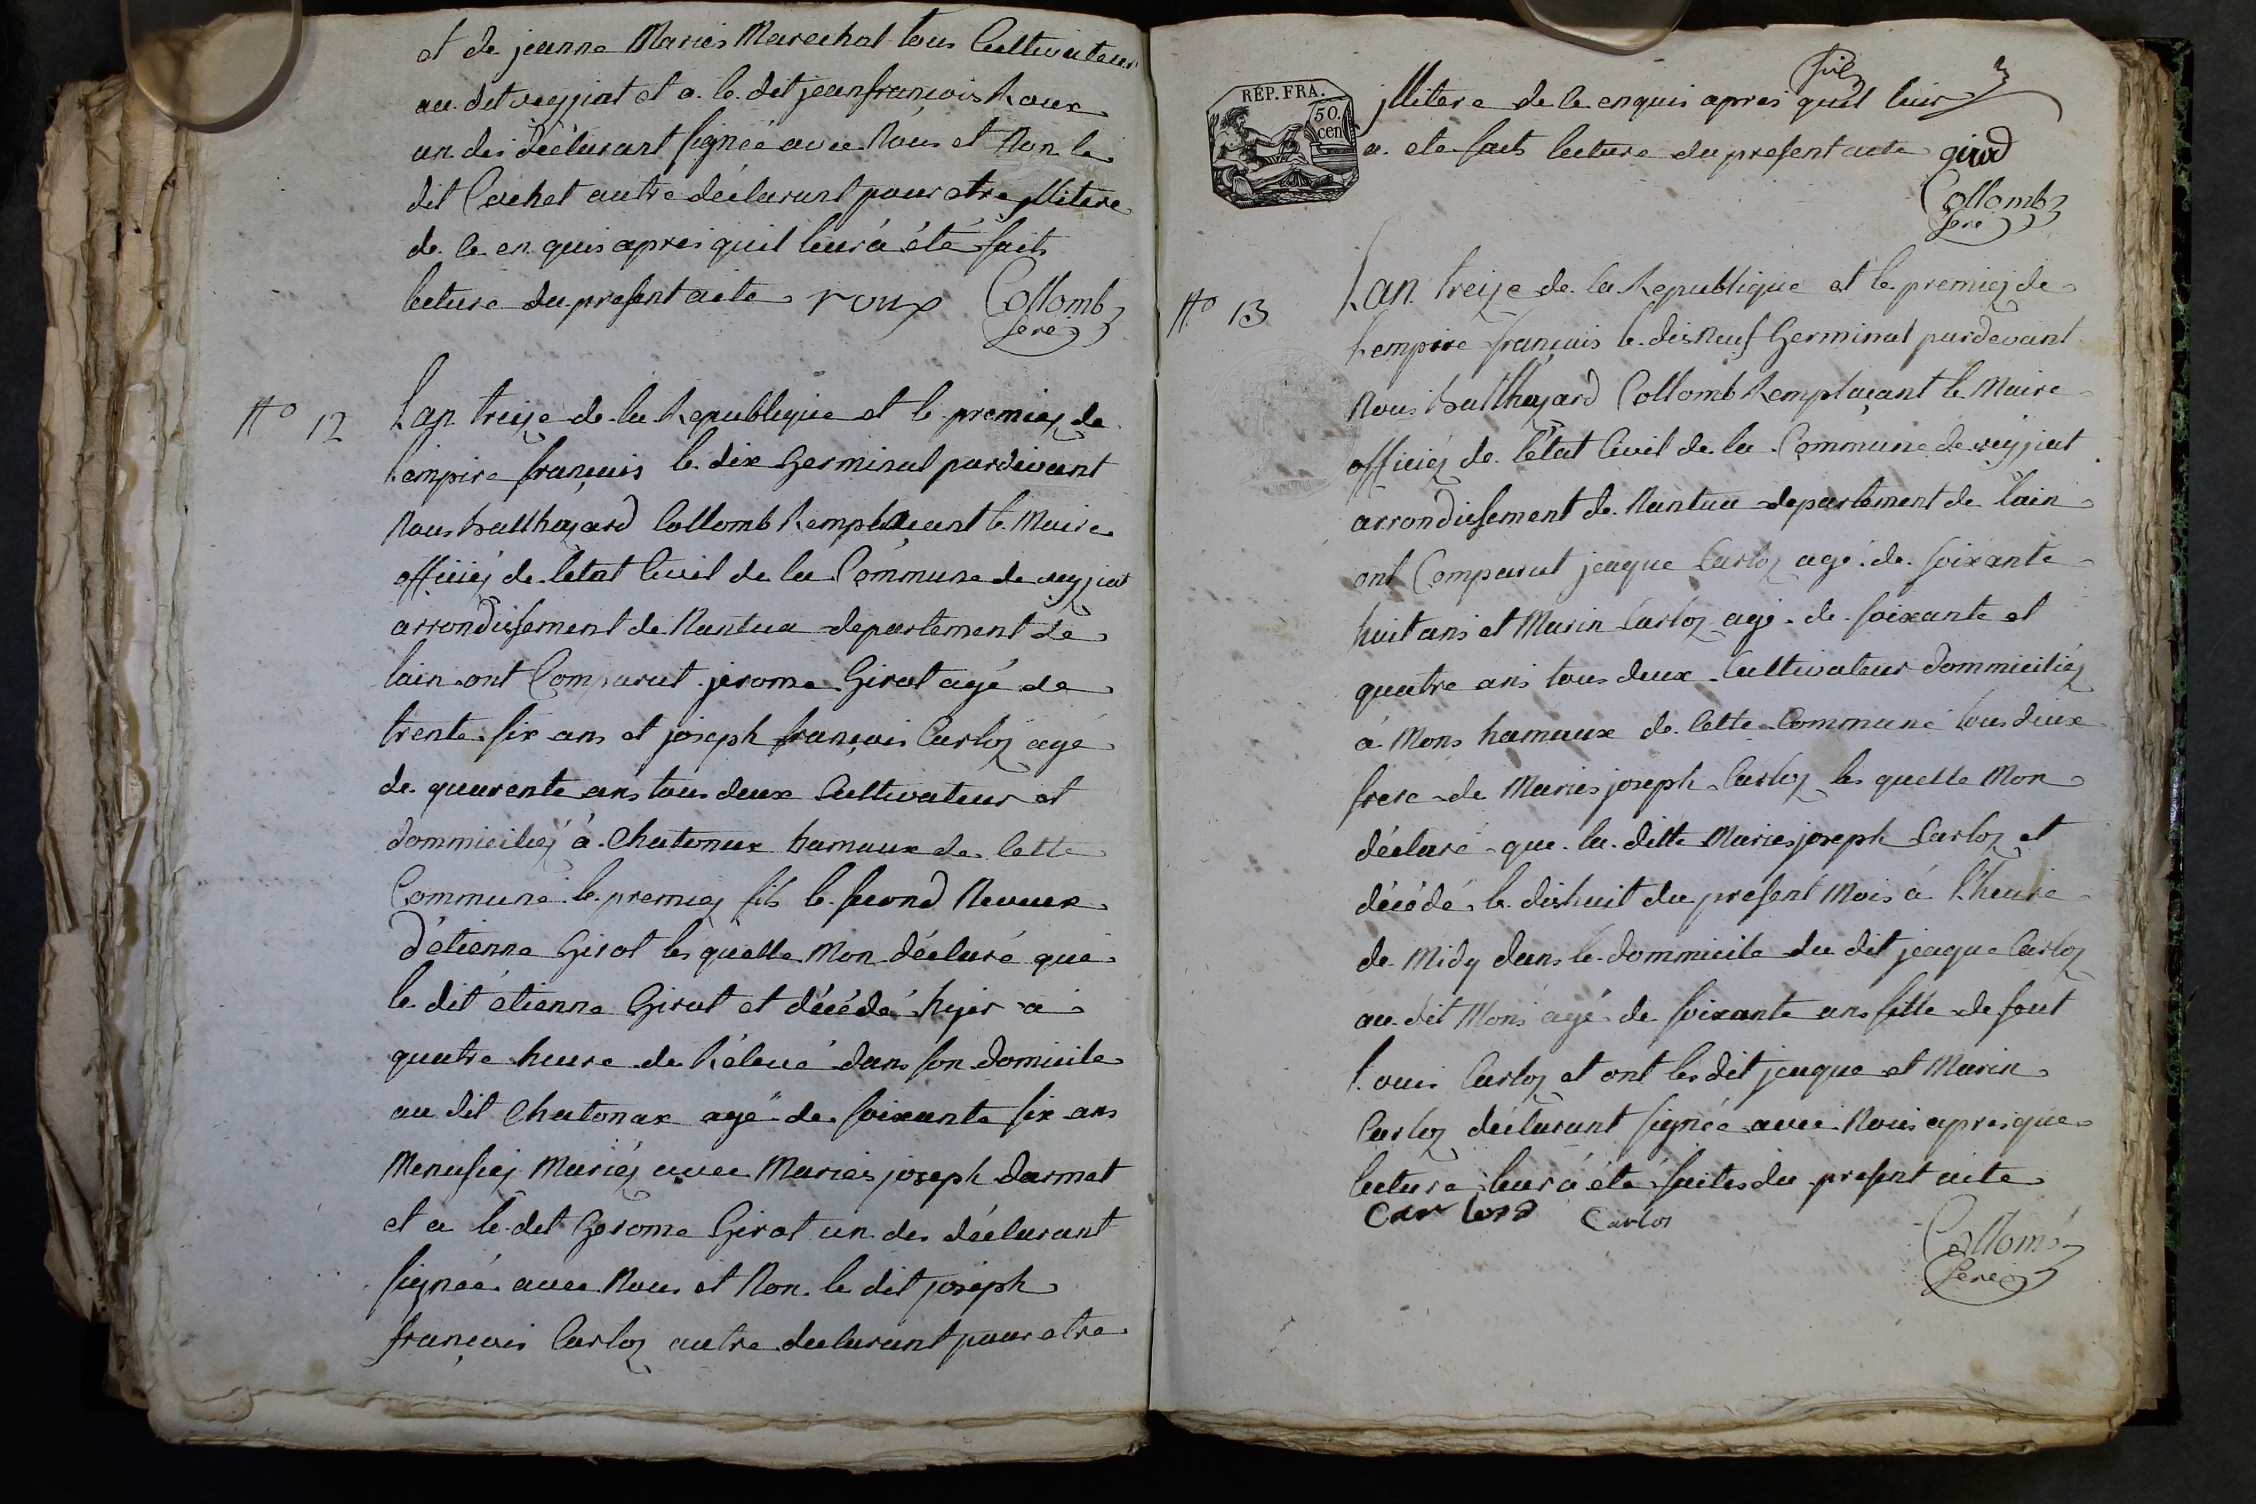 et de jeanne Maries Marechal tous Cultivateur
au dit veyziat et a le dit jeanfrancois Roux
un des déclarant signeé avec Nous et Non le
dit Cachet autre déclarant pour etre illitere
de ce en quis apres quil leur á été faits
lecture du present acte roux Collomb
No 12
Lan treize de la Republique et le premiez de
lempire français le dix Germinal pardevant
Nous balthazard Collomb Remplaçant le Maire
officiéz de létat Civil de la Commune de veyziat
arrondissement de Nantua departement de
lain ont Comparut jerome Girat agé de
trente six ans et joseph françois Carloz agé
de quarente ans tous deux Cultivateur et
dommiciliéz á Chatonax hamaux de Cette
Commune le premiez fils le second Neveux
détienne Girat les quelle Mon déclaré que
le dit étienne Girat et décédé hyer a
quatre heure de Rélevé dans son domicile
au dit Chatonax agé de soixante six ans
Menusiez Mariéz avec Maries joseph darmet
et a le dit Gerome Girat un des déclarant
signeé avec Nous et Non le dit joseph
françois Carloz autre declarant pour etre
RÉP. FRA.
50.
cen
jllitere de ce enquis apres quil leur
a ete faits lecture du present acte girad
Collomb
No 13
Lan treize de la Republique et le premiez de
Lempire français le disneuf Germinal pardevant
Nous balthazard Collomb Remplaçant le Maire
officiéz de létat Civil de la Commune de veyziat
arrondissement de Nantua departement de lain
ont Comparut jeaque Carloz agé de soixante
huit ans et Marin Carloz agé de soixante et
quatre ans tous deux Cultivateur dommiciliéz
á Mons hamaux de Cette Commune tous deux
frere de Maries joseph Carloz les quelle Mon
déclaré que la ditte Maries joseph Carloz et
décédé le dishuit du present Mois á l'heure
de Midy dans le dommicile du dit jeaque Carloz
au dit Mons agé de soixante ans fille de feut
Louis Carloz et ont les dit jeaque et Marin
Carloz déclarant signée avec Nous apres que
lecture leur á été faites du present acte
Carloz
Collomb